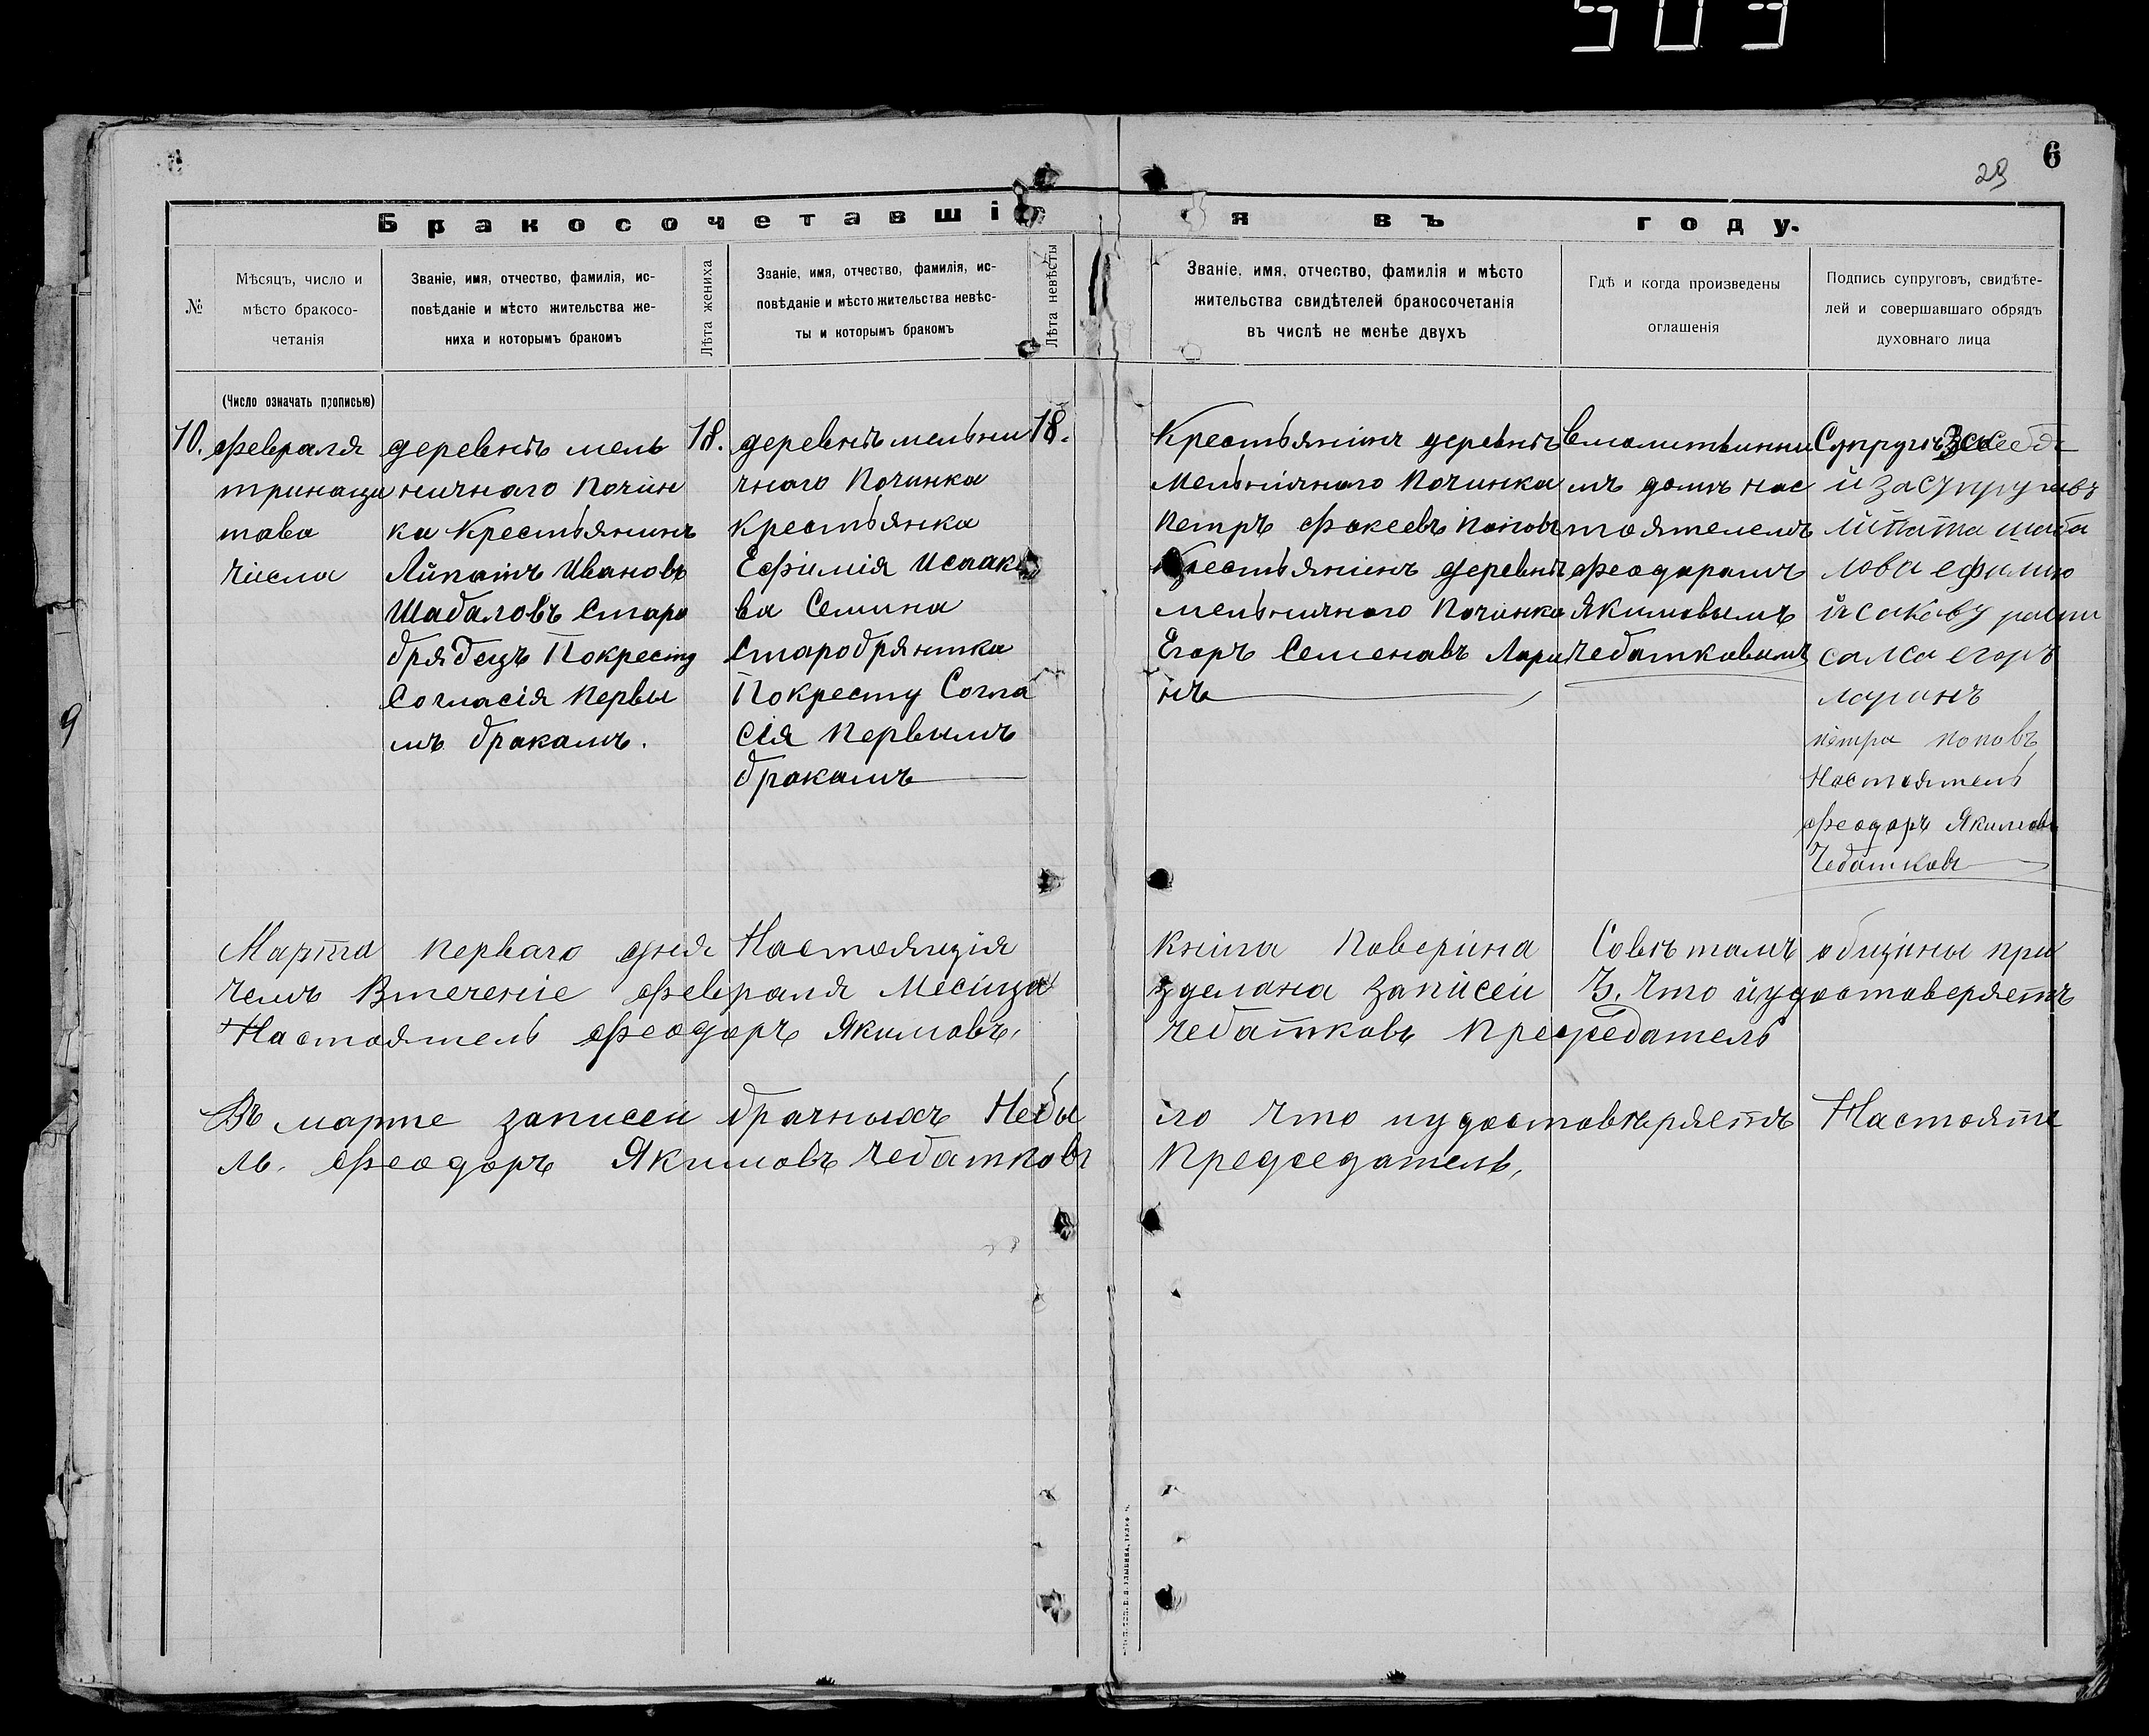 503
6
29
9
Бракосочетавші я въ году.
№
Мѣсяцъ, число и
мѣсто бракосо-
четанія
Званіе, имя, отчество, фамилія, ис-
повѣданіе и мѣсто жительства же-
ниха и которымъ бракомъ
Лѣта жениха
Званіе, имя, отчество, фамилія, ис-
повѣданіе и мѣсто жительства невѣс-
ты и которымъ бракомъ
Лѣта невѣсты
Званіе, имя, отчество, фамилія и мѣсто
жительства свидѣтелей бракосочетанія
въ числѣ не менѣе двухъ
Гдѣ и когда произведены
оглашенія
Подпись супруговъ, свидѣте-
лей и совершавшаго обрядъ
духовнаго лица
(Число означать прописью)
10.
февраля
тринацы
тава
числа
деревнѣ мель
ничнаго Почин
ка Крестьянинъ
Айпатъ Ивановъ
Шабаловъ Старо
брядецъ Покресту
Согласія Первы
мъ бракамъ.
18.
деревнѣ мельни
чнаго Починка
крестьянка
Ефимія Исаако
ва Семина
Старобрянтка
Покресту Согла
сія Первымъ
бракамъ
18.
Крестьянинъ деревнѣ
Мельничнаго Починка
Петръ Фокеевъ Поповъ
Крестьянинъ деревнѣ
мельничнаго Починка
Егоръ Семенавъ Лари
нъ
вмалитвинно
мъ домъ нас
тоятелемъ
феодарамъ
Якимовымъ
Чебатковымъ
Супругъ За себя
и за супругавъ
Айпата шаба
лова ефимию
исакову распи
салса егоръ
ларинъ
петра поповъ
Настоятель
феодоръ Якимовъ
Чебатковъ
Марта перваго дня Настоящія книга Поверина Совѣтамъ общины при
чемъ Втеченіе февраля Месица зделана записеи 3. что иудостоверяетъ
Настоятель феодоръ Якимовъ, чебатковъ председатель
Въ марте записеи брачныхъ Небы ло что иудостовѣряетъ Настояте
ль. феодоръ Якимовъ чебатковъ Председатель,